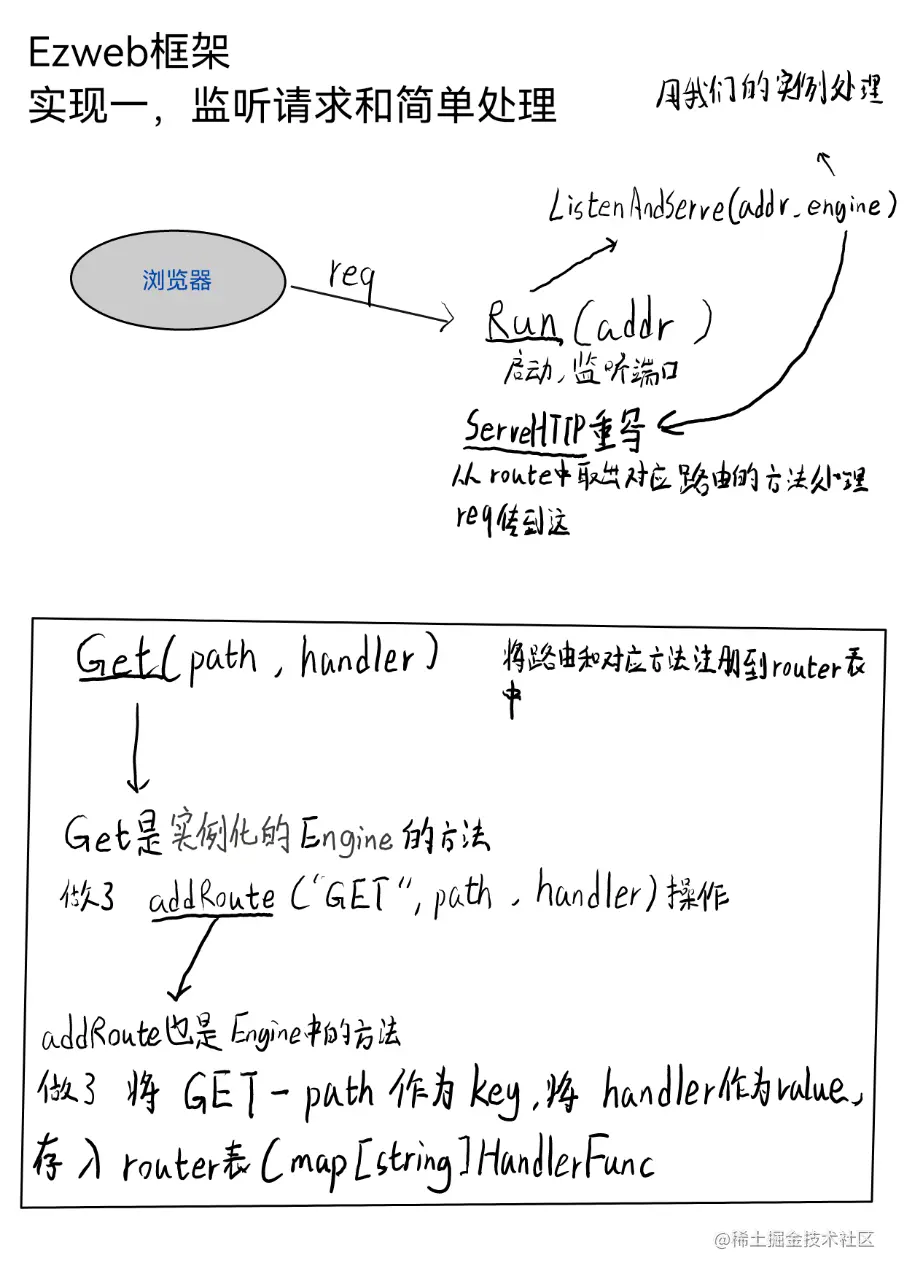 Ezweb框架
实现一，监听请求和简单处理
用我们的实例处理
ListenAndServe(addr, engine)
浏览器
req
Run(addr )
启动,监听端口
ServeHTTP重写
从route中取出对应路由的方法处理
req传到这
Get(path, handler)
将路由和对应方法注册到router表
中
Get是实例化的Engine的方法
做了 addRoute ("GET", path, handler)操作
addRoute也是Engine中的方法
做了将 GET-path作为key,将 handler作为value,
存入router表(map[string]HandlerFunc
@稀土掘金技术社区